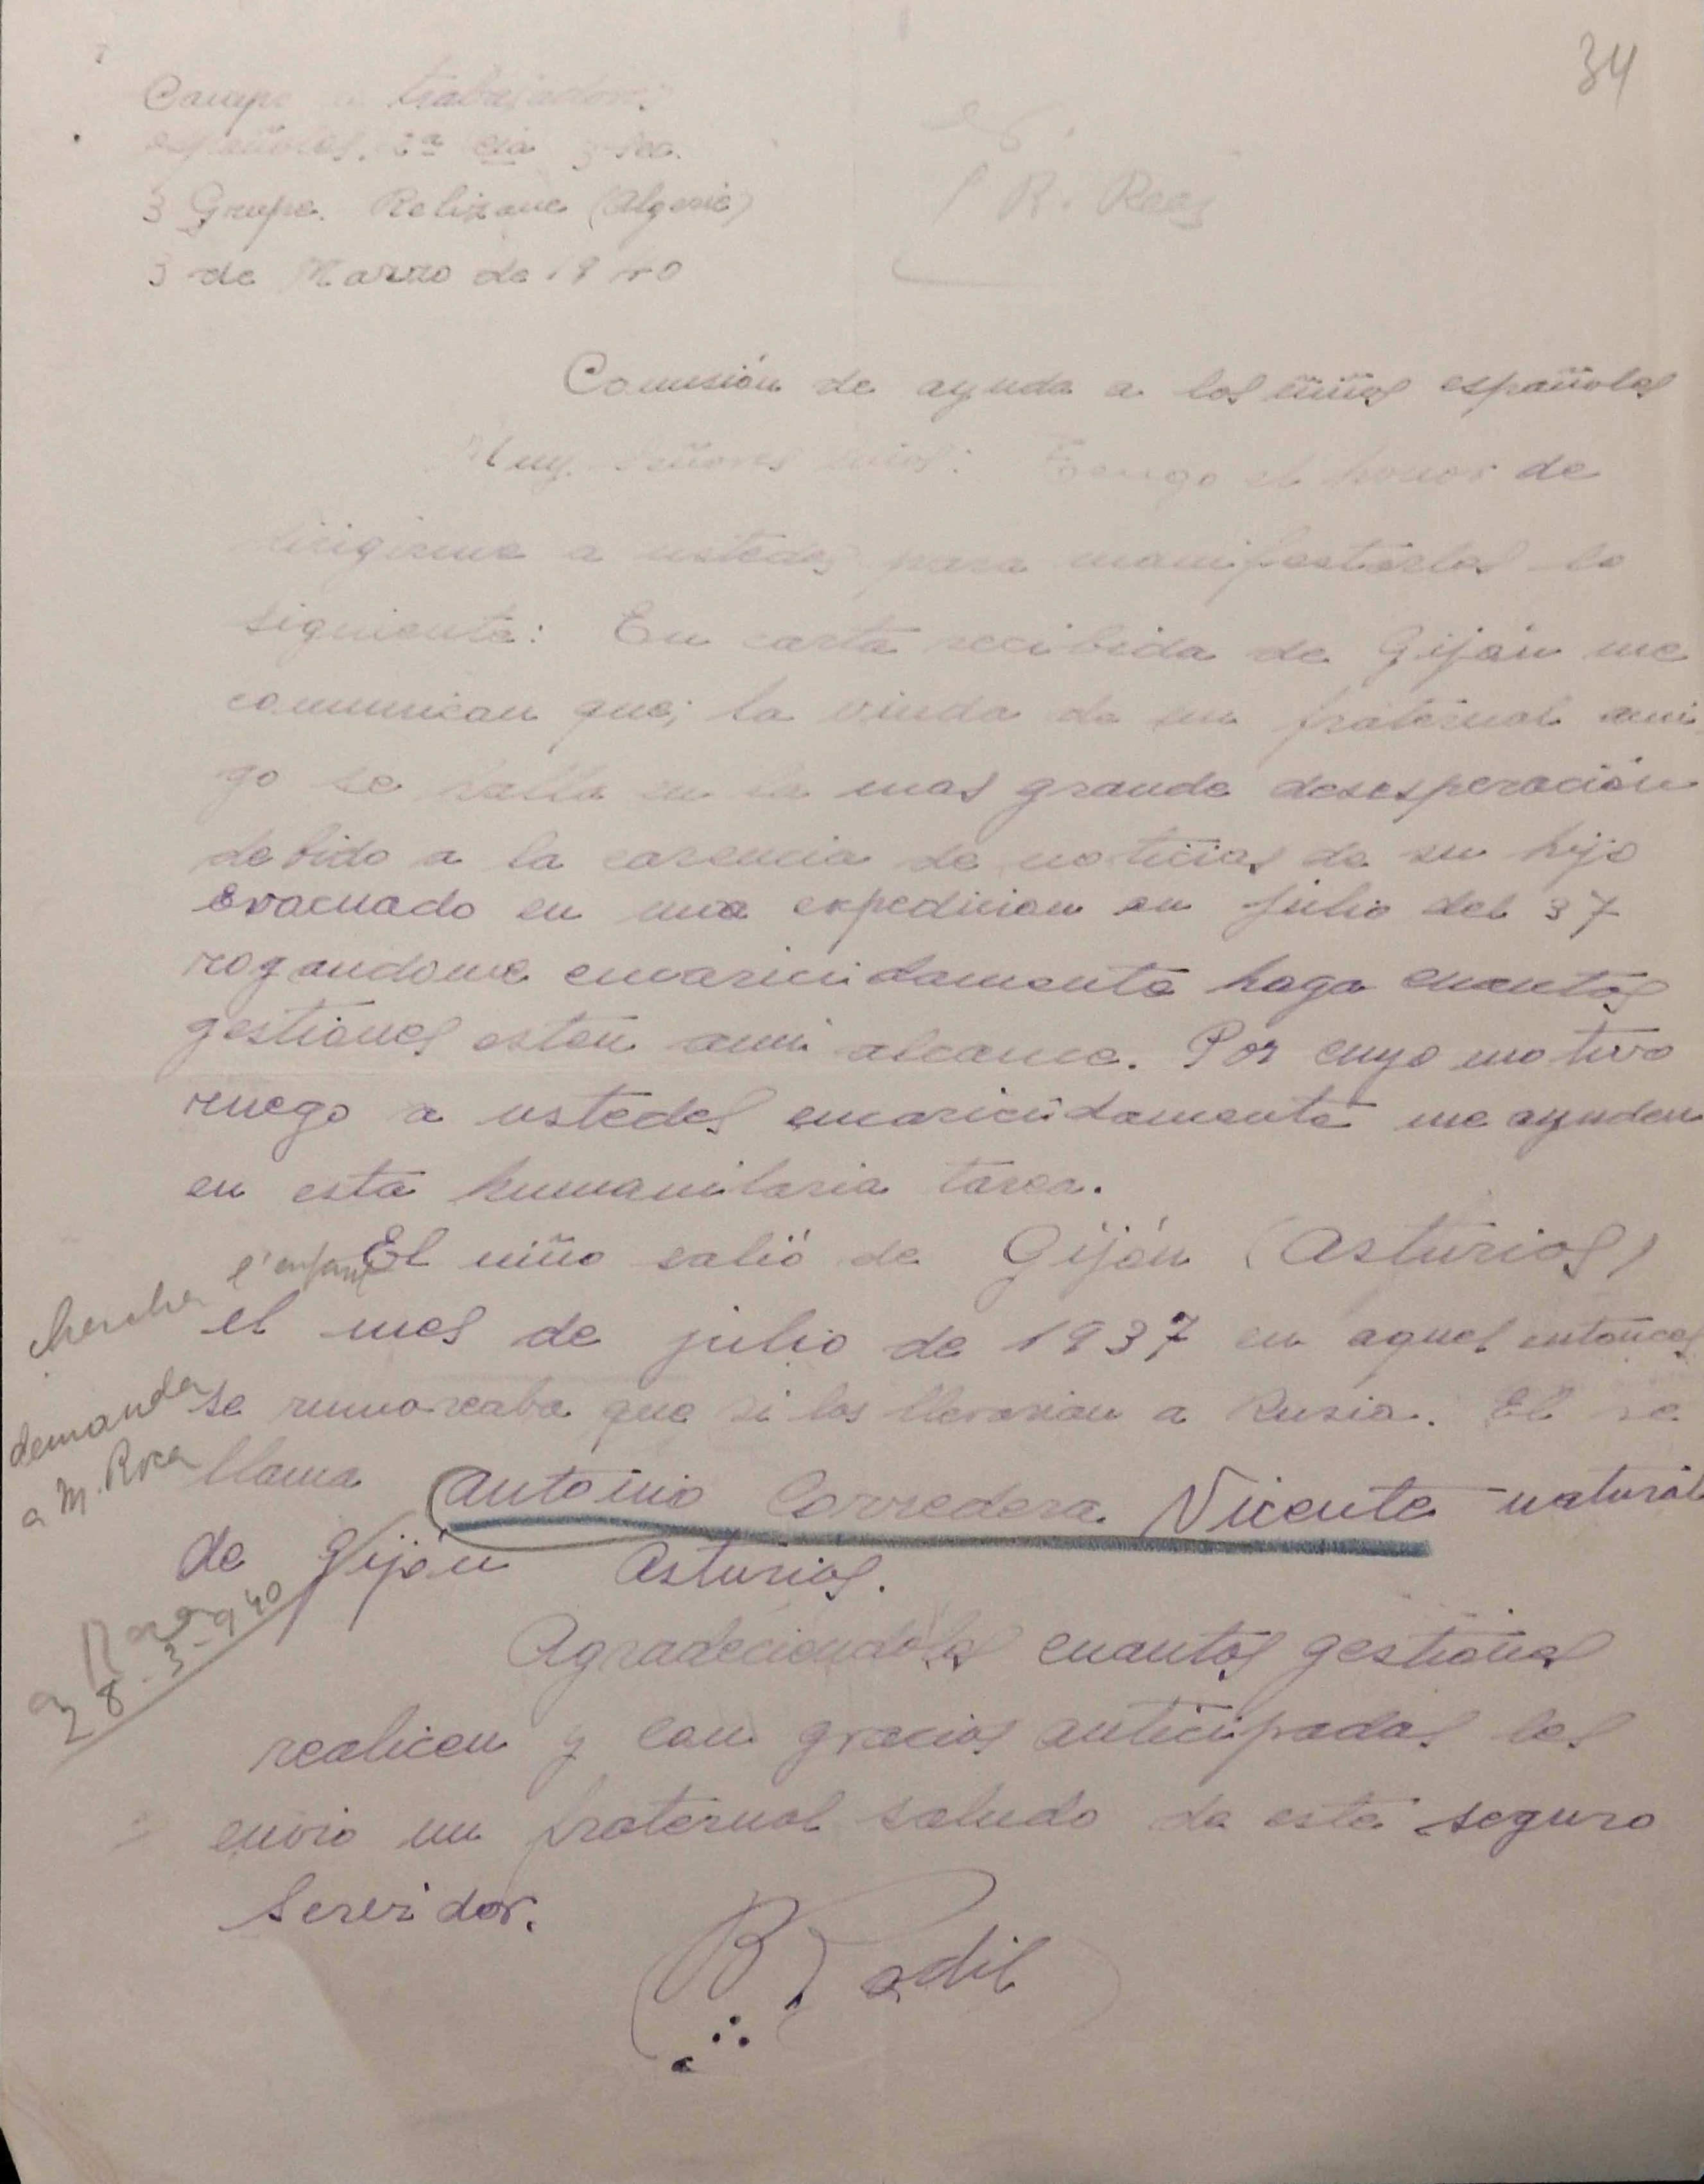 34
Campo de trabajadores
españoles. 2ª cia 3 sec.
3 Grupe. Relizane (Algerie)
3 de Marzo de 1940
R.
Comisión de ayuda a los niños españoles
Muy Señores mios: Tengo el honor de
dirigirme a ustedes para manifestarles lo
siguiente: En carta recibida de Gijón me
comunican que; la viuda de un fraternal ami-
go se halla en la mas grande desesperación
debido a la carencia de noticias de su hijo
evacuado en una expedicion en julio del 37
rogandome encarecidamente haga cuantas
gestiones esten ami alcance. Por cuyo motivo
ruego a ustedes encarecidamente me ayuden
en esta humanitaria tarea.
El niño salió de Gijón (Asturias)
el mes de julio de 1937 en aquel entonces
se rumoreaba que si los llevarian a Rusia. El se
llama Antonio Corredera Vicente natural
de Gijón Asturias.
cherche l'enfant
demande
a M. Roca
28-3-940
Agradeciendoles cuantas gestiones
realicen y con gracias anticipadas les
envio un fraternal saludo de este seguro
servidor.
B Padil